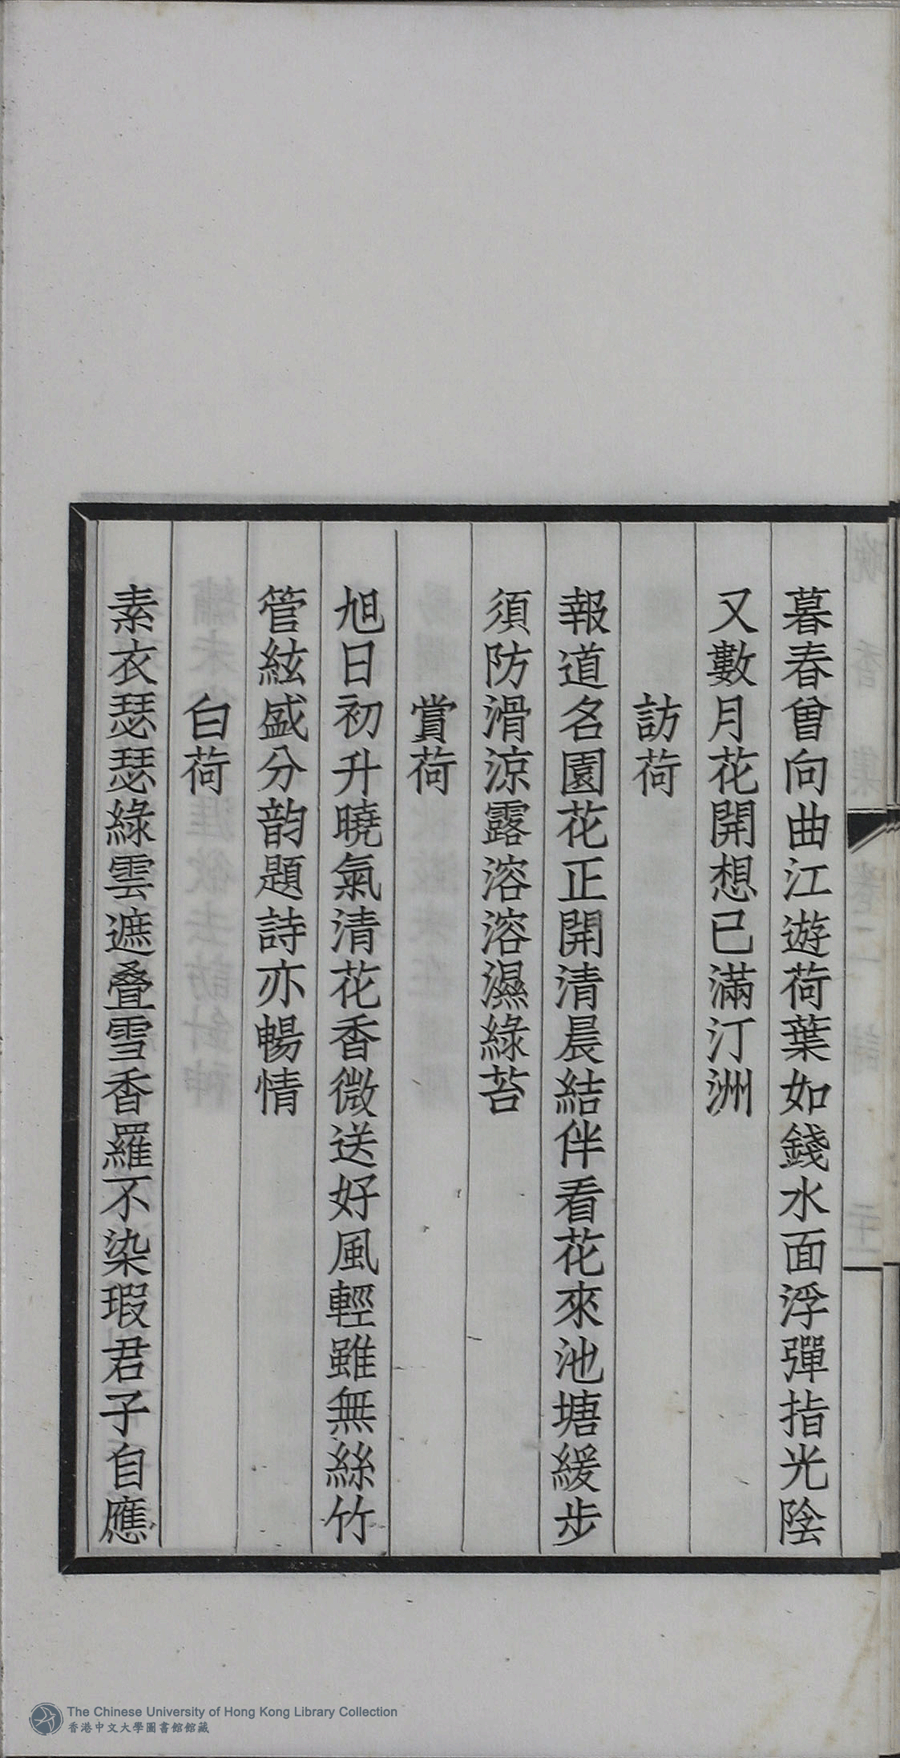 暮春曾向曲江遊荷葉如錢水面浮彈指光陰
又數月花開想已滿汀洲
訪荷
報道名園花正開清晨結伴看花來池塘緩步
須防滑涼露溶溶濕綠苔
賞荷
旭日初升曉氣清花香微送好風輕雖無絲竹
管絃盛分韵題詩亦暢情
白荷
素衣瑟瑟綠雲遮叠雪香羅不染瑕君子自應
The Chinese University of Hong Kong Library Collection
香港中文大學圖書館館藏